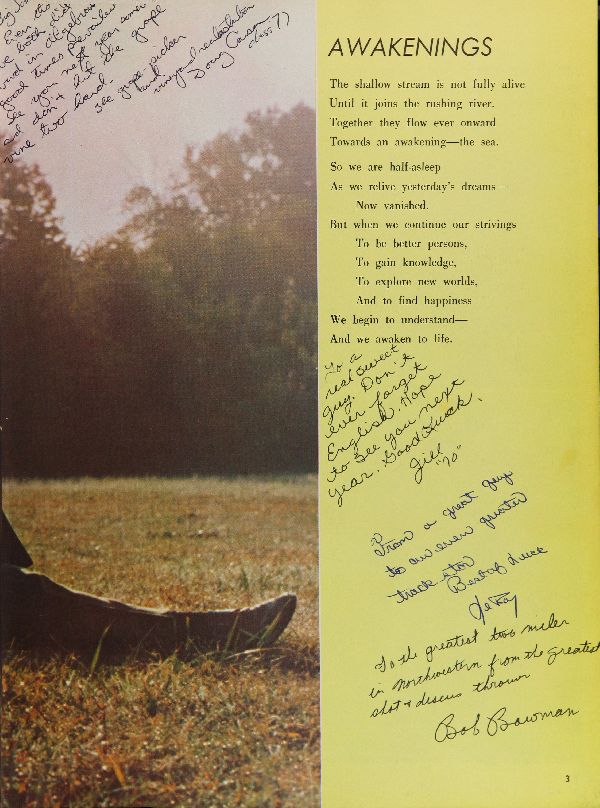 Even tho
we both did
good times
See you next year some
and don't let the grape
vine two hard.
see grape picker
and
vineyard
Doug
AWAKENINGS
The shallow stream is not fully alive
Until it joins the rushing river.
Together they flow ever onward
Towards an awakening—the sea.
So we are half-asleep
As we relive yesterday's dreams
Now vanished.
But when we continue our strivings
To be better persons,
To gain knowledge,
To explore new worlds,
And to find happiness
We begin to understand—
And we awaken to life.
To a
real sweet
guy. Don't
ever forget
English. Hope
to see you next
year. Good Luck.
Jill
"70"
From a great guy
to an even greater
track star
Best of luck
To the greatest two miler
in Northwestern from the greatest
shot & discus thrower
Bob Bowman
3